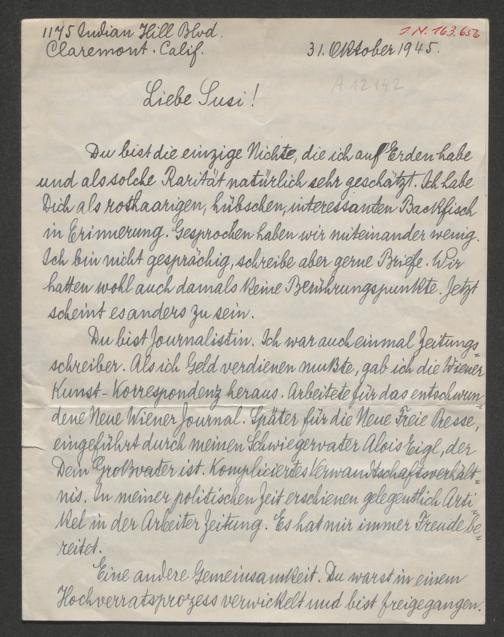 1175 Indian Hill Blvd.
Claremont. Calif.
31. Oktober 1945.
J.N. 163.656
A 12142
Liebe Susi!
Du bist die einzige Nichte, die ich auf Erden habe
und als solche Rarität natürlich sehr geschätzt. Ich habe
Dich als rothaarigen, hübschen, interessanten Backfisch
in Erinnerung. Gesprochen haben wir miteinander wenig.
Ich bin nicht gesprächig, schreibe aber gerne Briefe. Wir
hatten wohl auch damals keine Berührungspunkte. Jetzt
scheint es anders zu sein.
Du bist Journalistin. Ich war auch einmal Zeitungs=
schreiber. Als ich Geld verdienen mußte, gab ich die Wiener
Kunst-Korrespondenz heraus. Arbeitete für das entschwun=
dene Neue Wiener Journal. Später für die Neue Freie Presse,
eingeführt durch meinen Schwiegervater Alois Eigl, der
Dein Großvater ist. Kompliciertes Verwandtschaftsverhält=
nis. In meiner politischen Zeit erschienen gelegentlich Arti=
kel in der Arbeiter Zeitung. Es hat mir immer Freude be=
reitet.
Eine andere Gemeinsamkeit. Du warst in einem
Hochverratsprozess verwickelt und bist freigegangen.